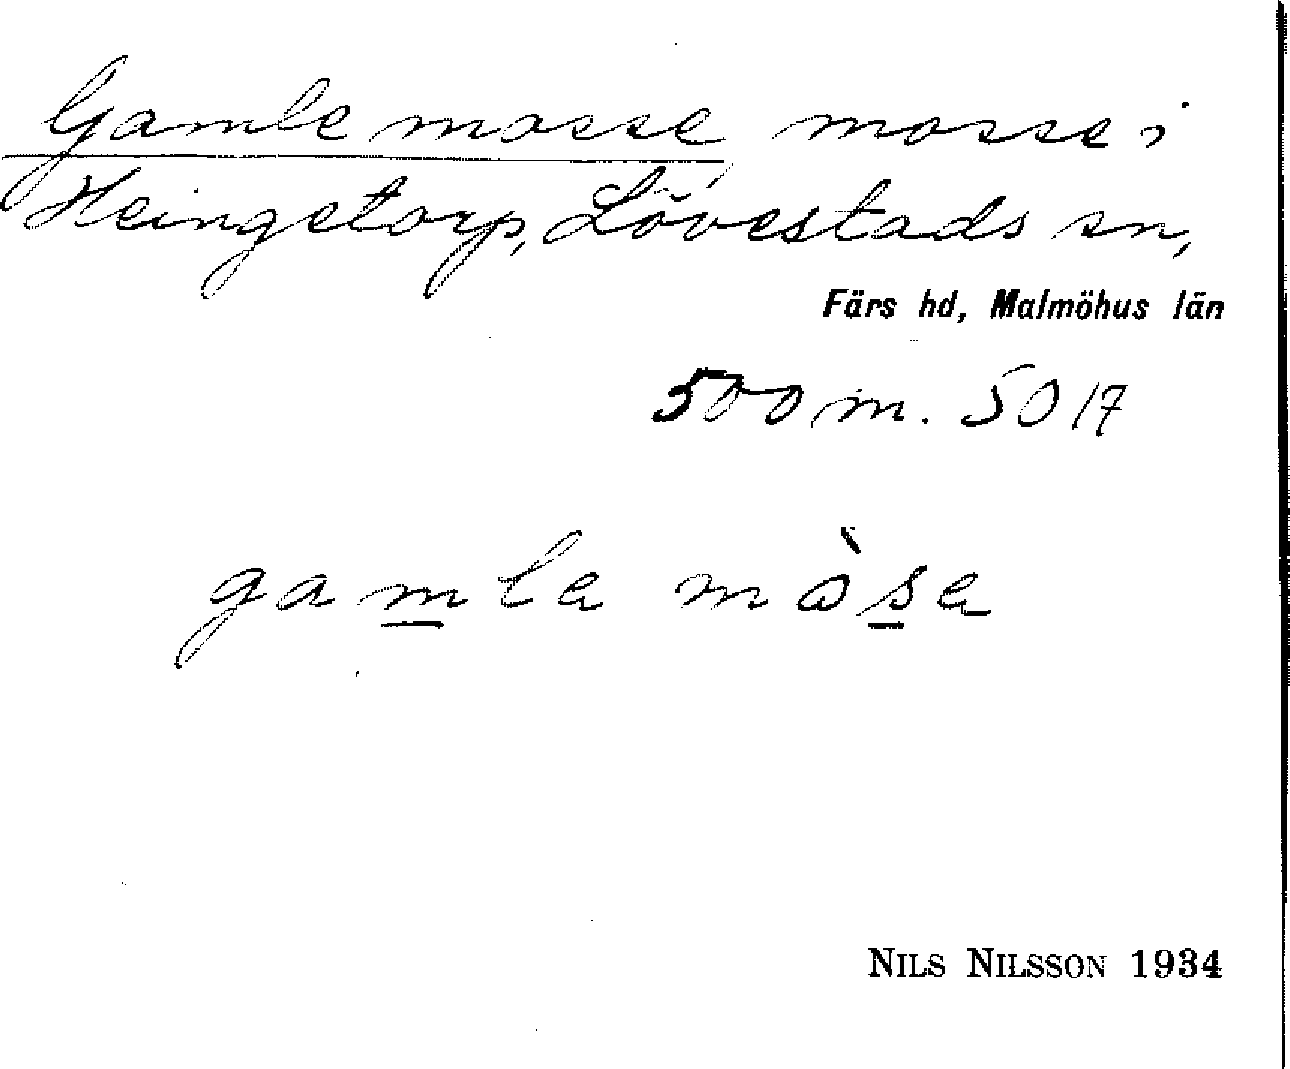 Gamle mosse mosse i
Heingetorp, Lövestads sn,
Färs hd, Malmöhus län
500 m. 50/7
gamla mòsa
NILS NILSSON 1934